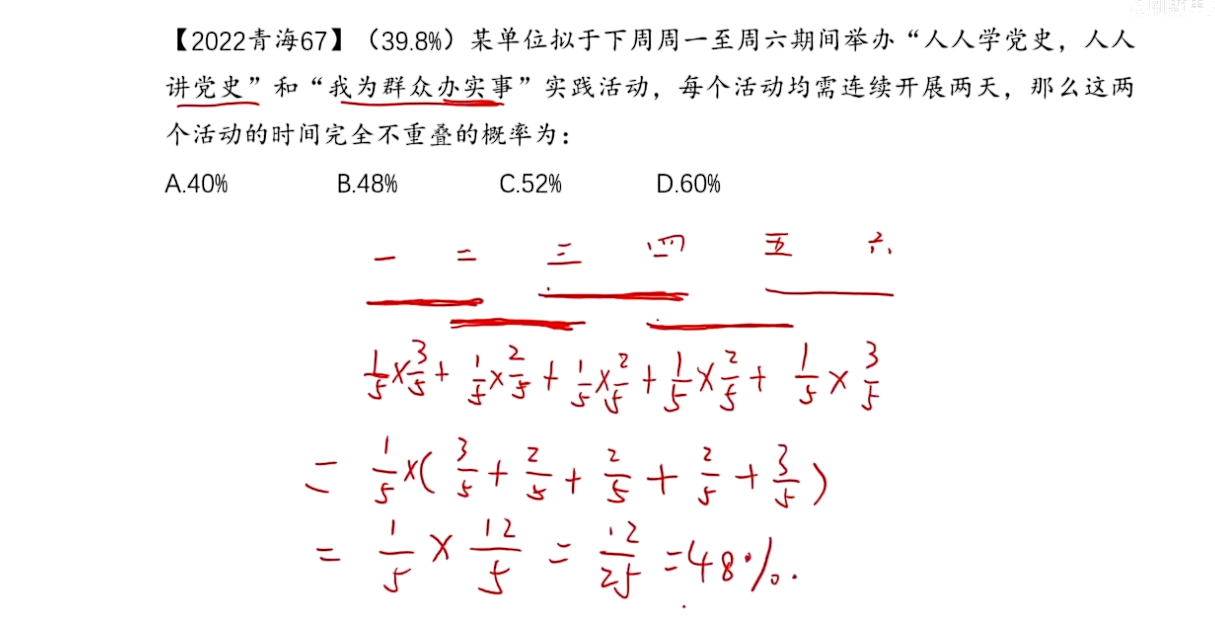 【2022青海67】（39.8%）某单位拟于下周周一至周六期间举办“人人学党史，人人
讲党史”和“我为群众办实事”实践活动，每个活动均需连续开展两天，那么这两
个活动的时间完全不重叠的概率为：
A.40% B.48% C.52% D.60%
一 二 三 四 五 六
1/5×3/5+1/5×2/5+1/5×2/5+1/5×2/5+1/5×3/5
=1/5×(3/5+2/5+2/5+2/5+3/5)
=1/5×12/5=12/25=48%.